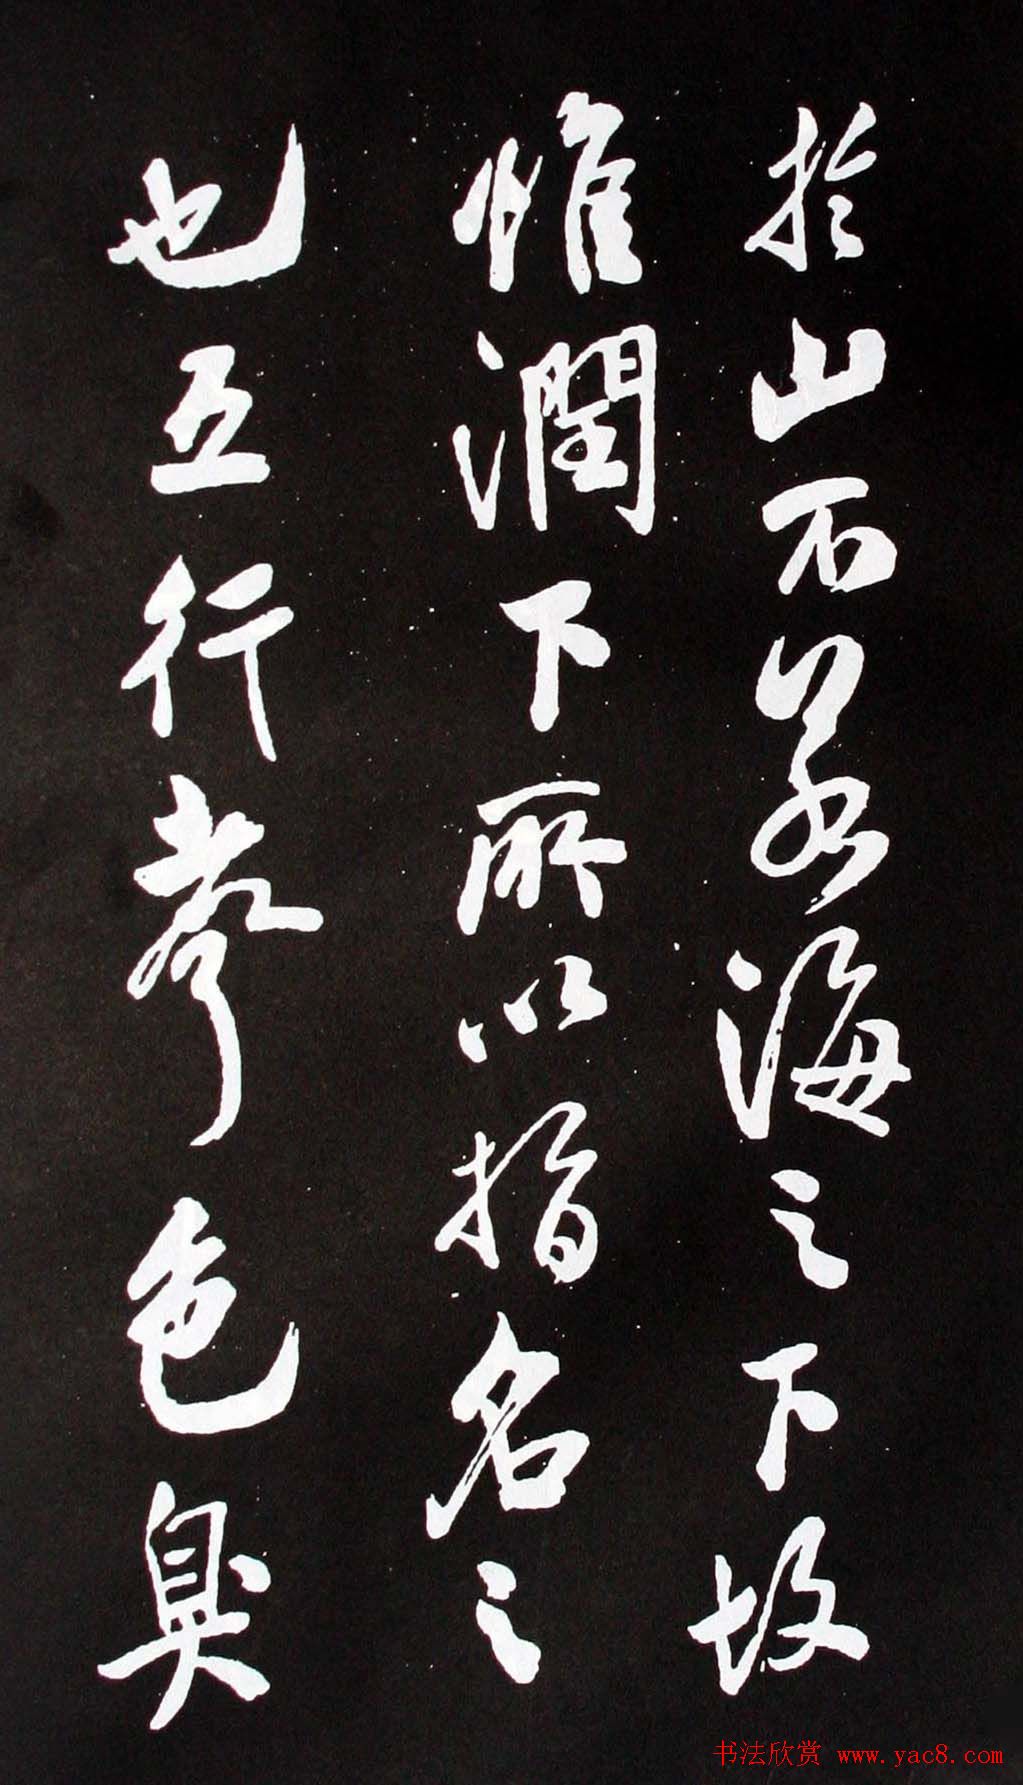 於山不若海之下故
惟潤下所以指名之
也五行聲色臭
书法欣赏 www.yac8.com